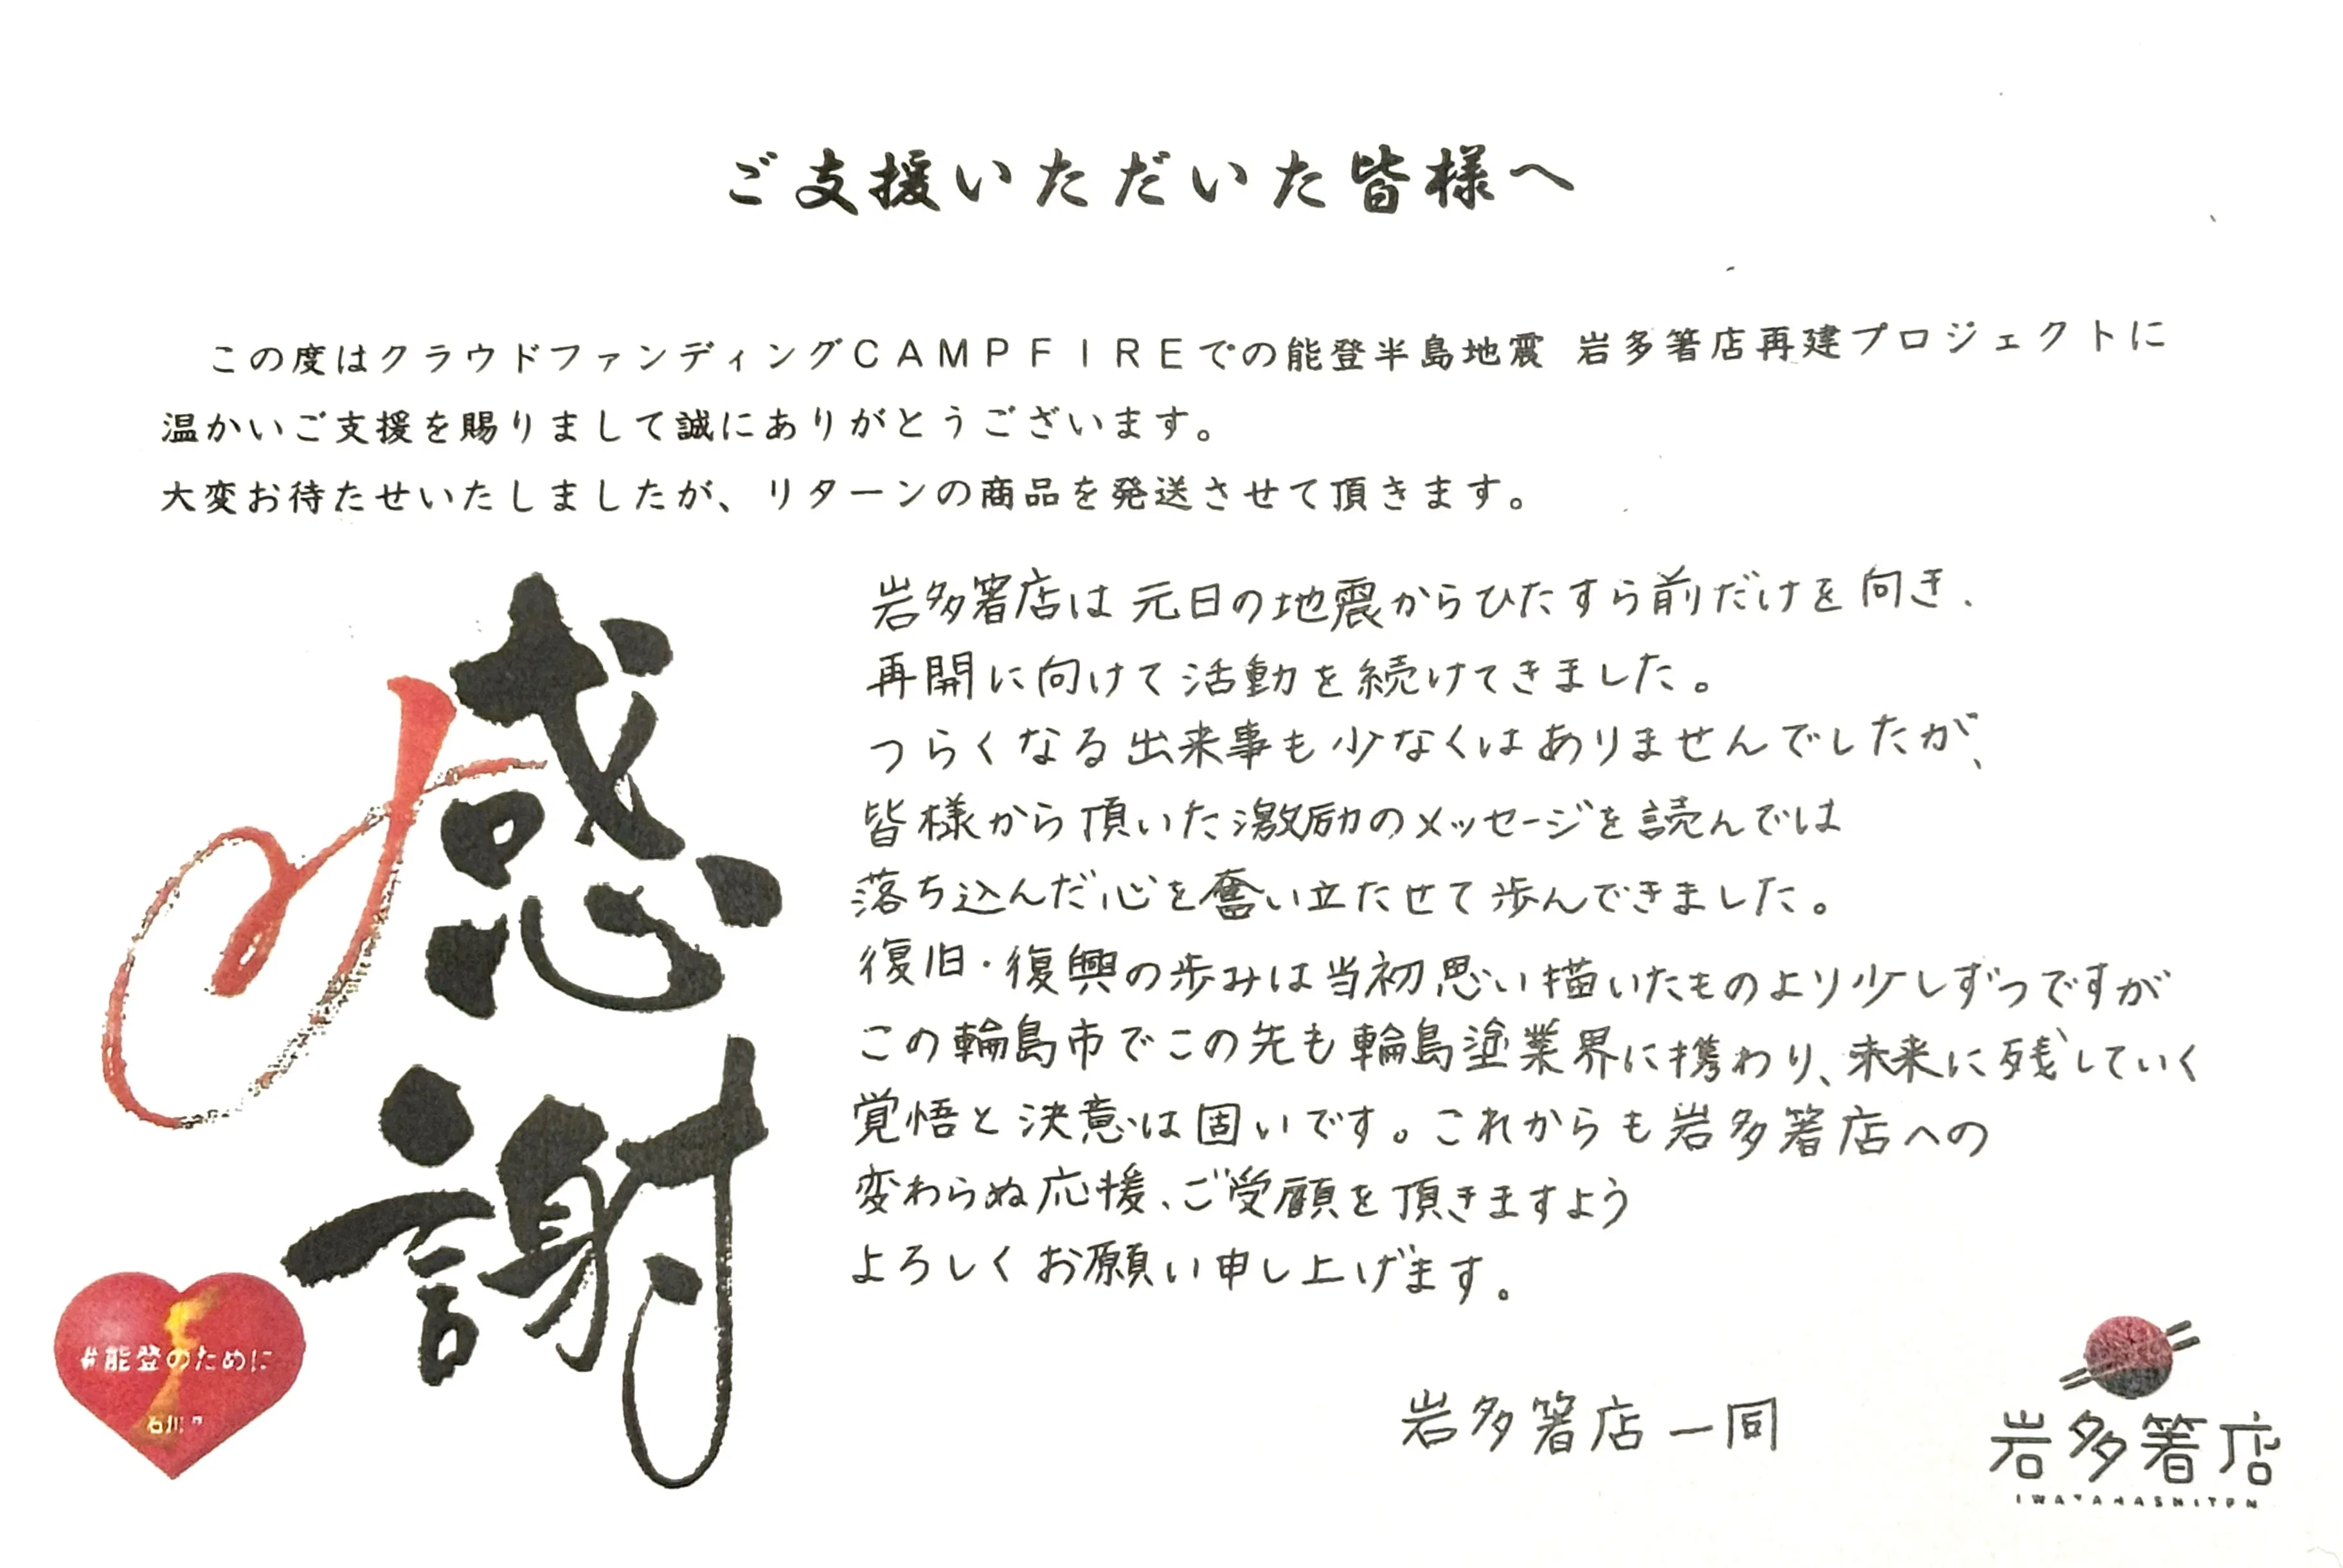 ご支援いただいた皆様へ
この度はクラウドファンディングCAMPFIREでの能登半島地震 岩多箸店再建プロジェクトに
温かいご支援を賜りまして誠にありがとうございます。
大変お待たせいたしましたが、リターンの商品を発送させて頂きます。
感謝
岩多箸店は元日の地震からひたすら前だけを向き、
再開に向けて活動を続けてきました。
つらくなる出来事も少なくはありませんでしたが、
皆様から頂いた激励のメッセージを読んでは
落ち込んだ心を奮い立たせて歩んできました。
復旧・復興の歩みは当初思い描いたものより少しずつですが
この輪島市でこの先も輪島塗業界に携わり、未来に残していく
覚悟と決意は固いです。これからも岩多箸店への
変わらぬ応援、ご愛顧を頂きますよう
よろしくお願い申し上げます。
岩多箸店一同
#能登のために
石川
岩多箸店
IWATAHASHITEN